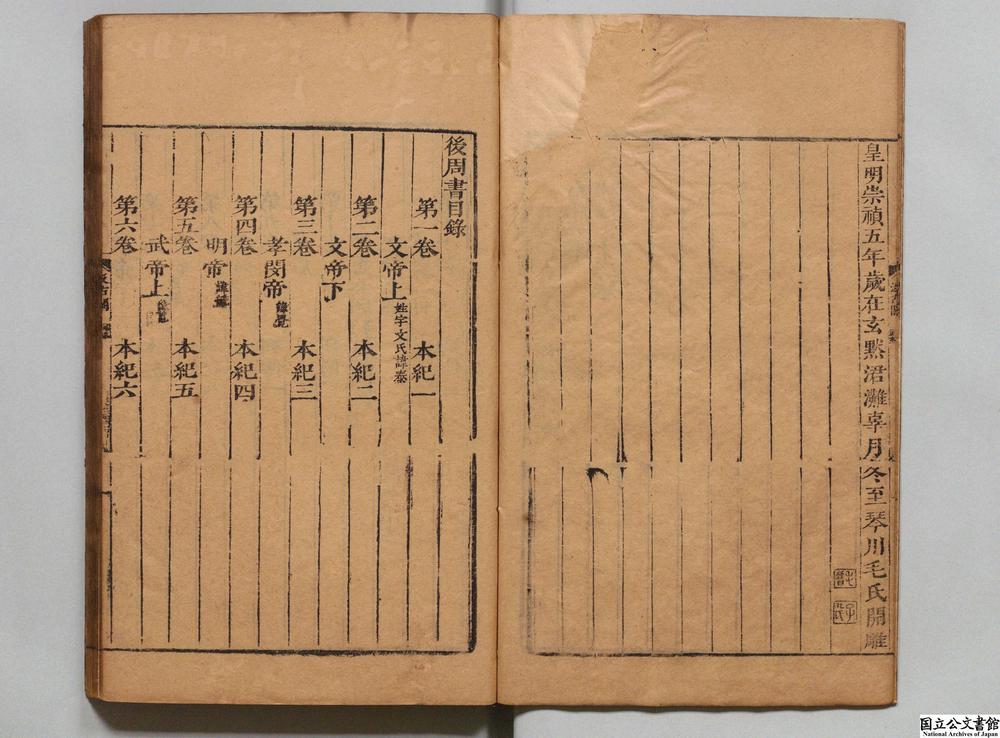 皇明崇禎五年歲在玄黓涒灘辜月冬至琴川毛氏開雕
毛晉
後周書目錄
第一卷 本紀一
文帝上 姓宇文氏諱泰
第二卷 本紀二
文帝下
第三卷 本紀三
孝閔帝 諱覺
第四卷 本紀四
明帝 諱毓
第五卷 本紀五
武帝上
第六卷 本紀六
国立公文書館
National Archives of Japan